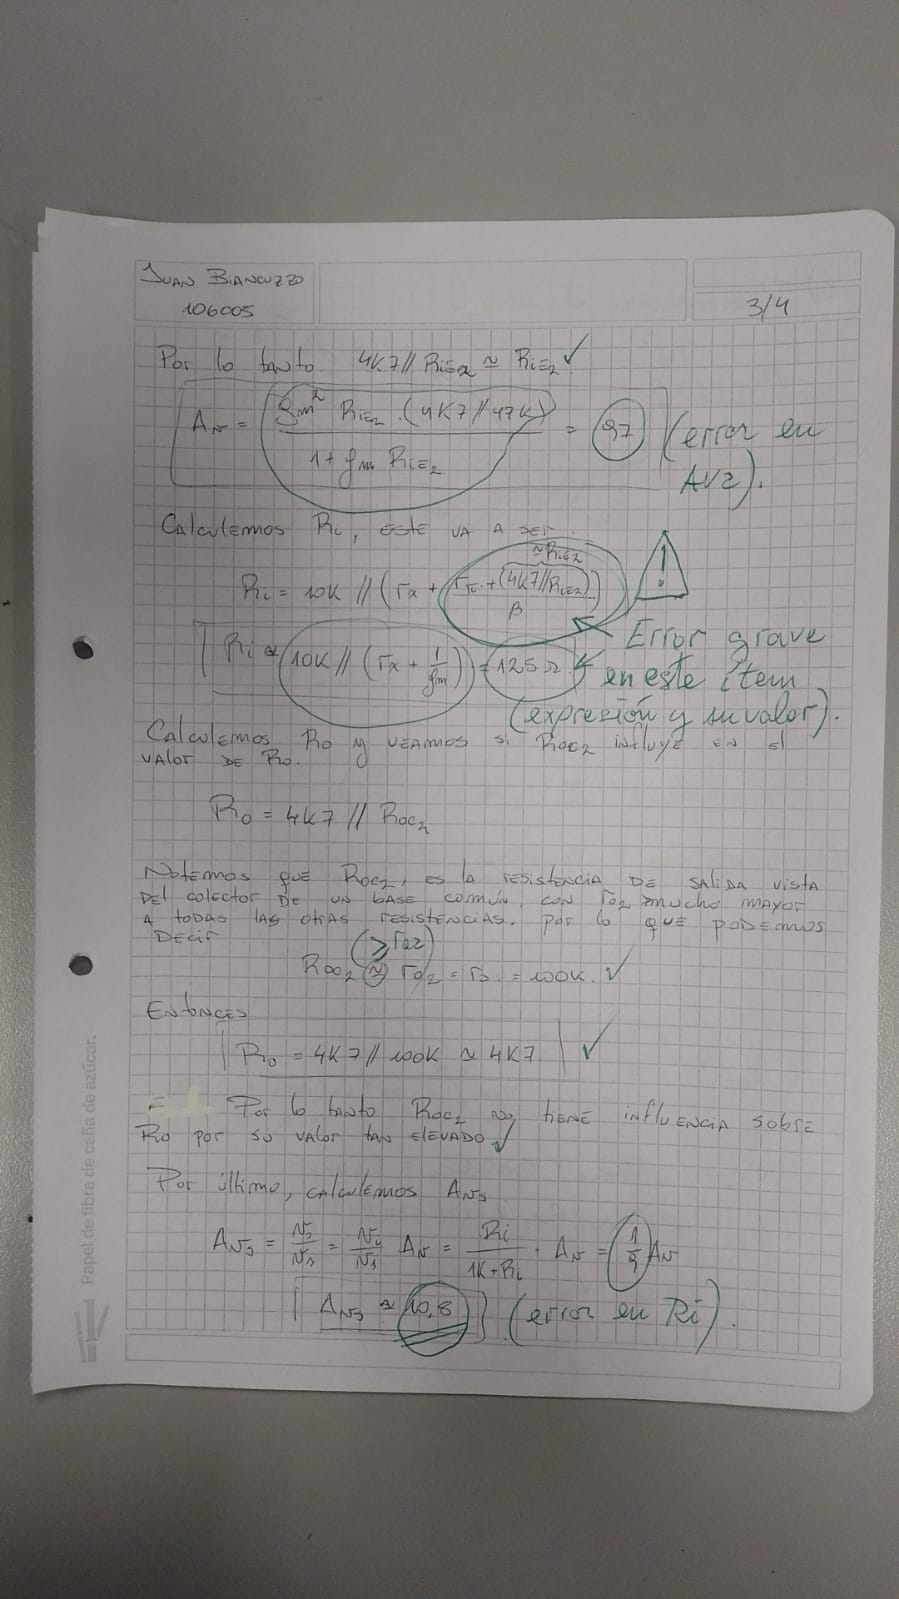 JUAN BIANCUZZO
106005
3/4
Por lo tanto 4K7 // RiE2 ≈ RiE2 ✓
Av = gm² RiE2 . (4K7//47K) / 1 + gm RiE2 = 97 (error en
AV2).
Calculemos Ri, este va a ser:
≈RiE2
Ri = 10K // (rx + rπ + (4K7//RiE2) / β) !
Error grave
Ri ≈ 10K // (rx + 1/gm) = 125Ω en este ítem
(expresión y su valor).
Calculemos Ro y veamos si Roc2 influye en el
valor de Ro.
Ro = 4K7 // Roc2
Notemos que Roc2, es la resistencia de salida vista
del colector de un base común, con ro2 mucho mayor
a todas las otras resistencias. por lo que podemos
decir
(≥ro2)
Roc2 ≈ ro2 = ro = 100K. ✓
Entonces
Ro = 4K7 // 100K ≈ 4K7 ✓
Por lo tanto Roc2 no tiene influencia sobre
Ro por su valor tan elevado ✓
Por último, calculemos Avs
Avs = Ri / 1K+Ri . Av = 1/9 Av
Avs ≈ 10,8 (error en Ri).
Papel de fibra de caña de azúcar.